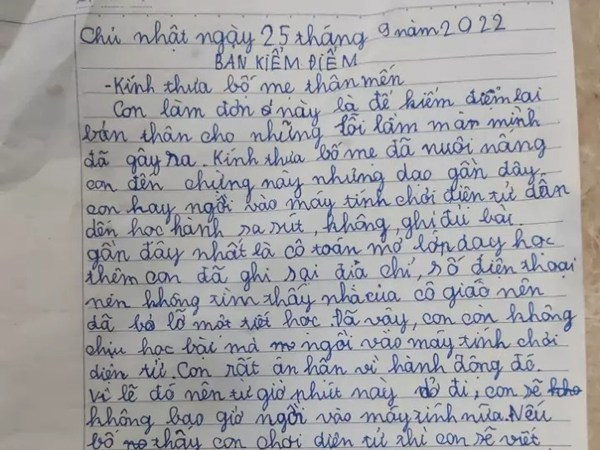 Chủ nhật ngày 25 tháng 9 năm 2022
BẢN KIỂM ĐIỂM
-Kính thưa bố mẹ thân mến
Con làm đơn này là để kiểm điểm lại
bản thân cho những lỗi lầm màn mình
đã gây ra. Kính thưa bố mẹ đã nuôi nấng
con đến chừng này nhưng dạo gần đây
con hay ngồi vào máy tính chơi điện tử dẫn
đến học hành sa sút, không, ghi đủ bài.
gần đây nhất là cô toán mở lớp dạy học
thêm con đã ghi sai địa chỉ, số điện thoại
nên không tìm thấy nhà của cô giáo nên
đã bỏ lỡ một tiết học. Đã vậy, con còn không
chịu học bài mà ngồi vào máy tính chơi
điện tử. Con rất ân hận vì hành động đó.
vì lẽ đó nên từ giờ phút này đi, con sẽ
không bao giờ ngồi vào máy tính nữa. Nếu
bố thấy con chơi điện tử thì con sẽ viết